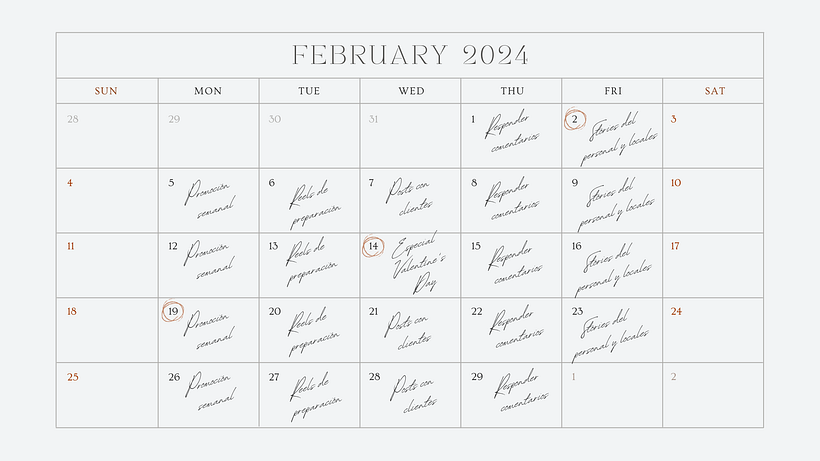 FEBRUARY 2024
SUN MON TUE WED THU FRI SAT
28 29 30 31 1 Responder comentarios 2 Stories del personal y locales 3
4 5 Promoción semanal 6 Reels de preparación 7 Posts con clientes 8 Responder comentarios 9 Stories del personal y locales 10
11 12 Promoción semanal 13 Reels de preparación 14 Especial Valentine's Day 15 Responder comentarios 16 Stories del personal y locales 17
18 19 Promoción semanal 20 Reels de preparación 21 Posts con clientes 22 Responder comentarios 23 Stories del personal y locales 24
25 26 Promoción semanal 27 Reels de preparación 28 Posts con clientes 29 Responder comentarios 1 2